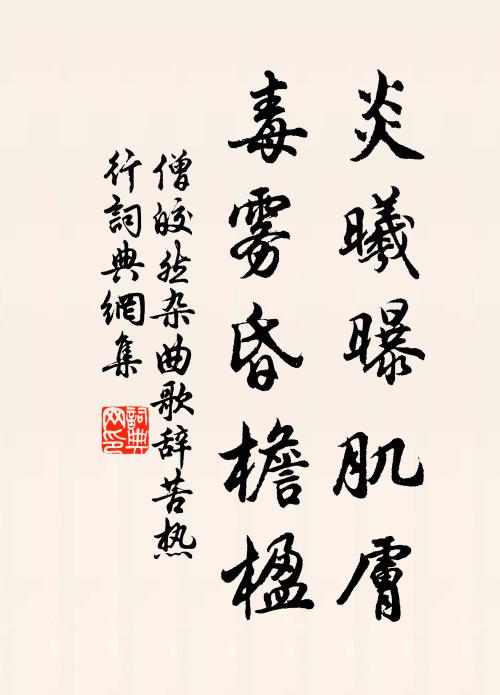 炎曦曝肌膚
毒雾昏檐楹
僧皎然杂曲歌辞苦热
行詞典網集
詞典网印